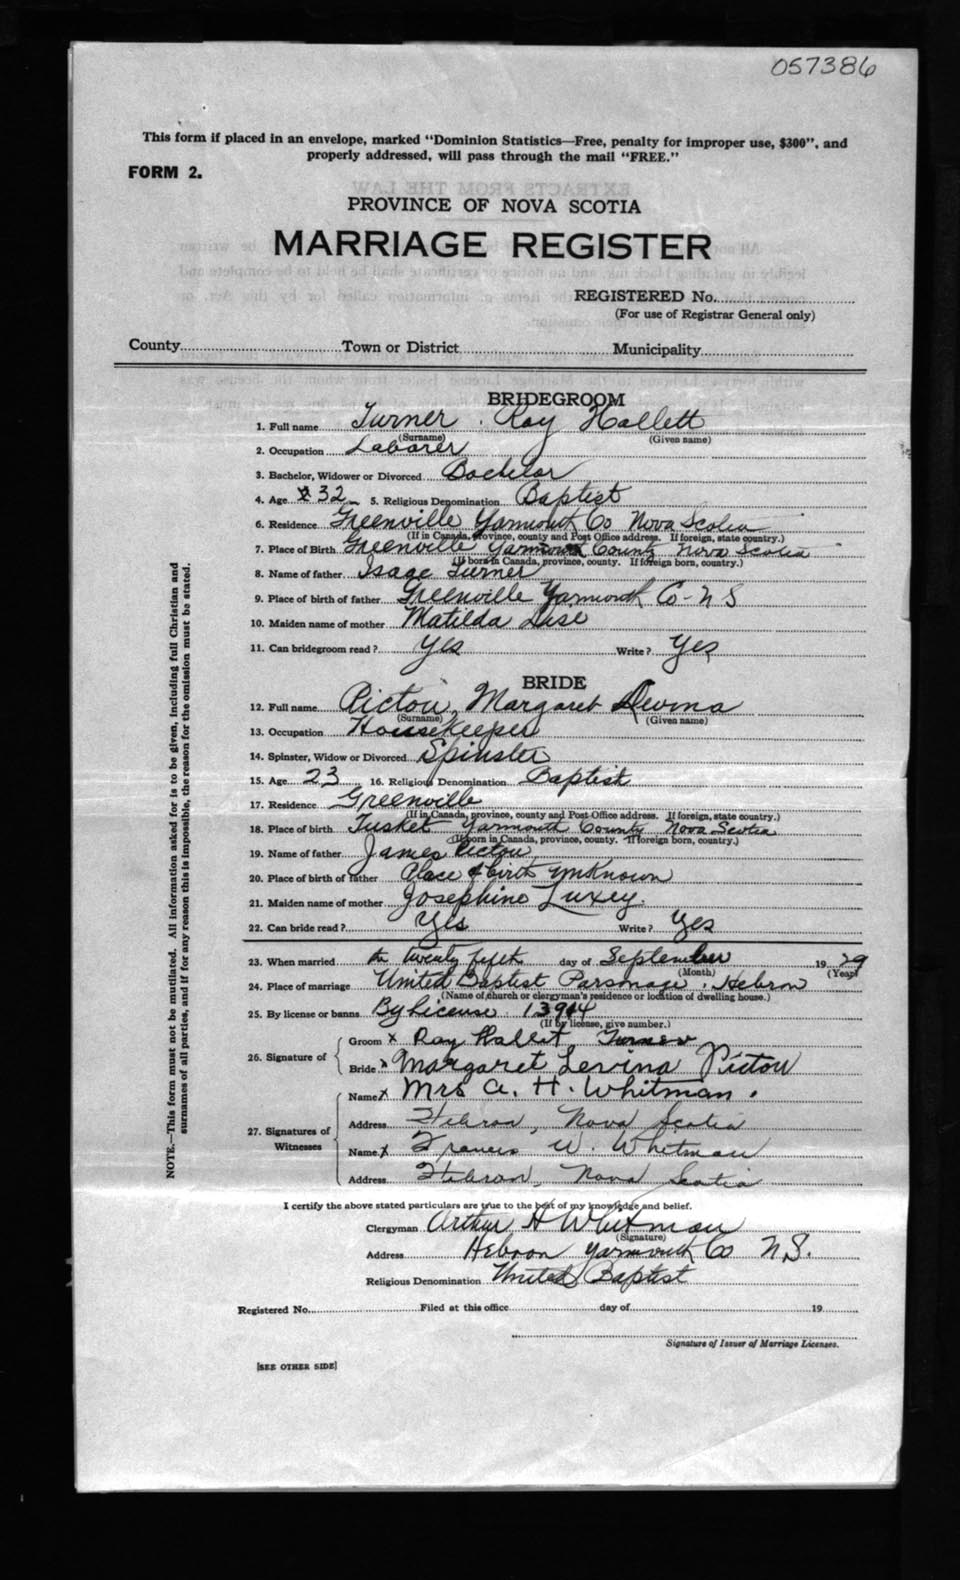 057386
This form if placed in an envelope, marked "Dominion Statistics—Free, penalty for improper use, $300", and
properly addressed, will pass through the mail "FREE."
FORM 2.
PROVINCE OF NOVA SCOTIA
MARRIAGE REGISTER
REGISTERED No.
(For use of Registrar General only)
County Town or District Municipality
BRIDEGROOM
1. Full name Turner . Roy Hallett
(Surname) (Given name)
2. Occupation Laborer
3. Bachelor, Widower or Divorced Bachelor
4. Age 32 5. Religious Denomination Baptist
6. Residence Greenville Yarmouth Co Nova Scotia
(If in Canada, province, county and Post Office address. If foreign, state country.)
7. Place of Birth Greenville Yarmouth County Nova Scotia
(If born in Canada, province, county. If foreign born, country.)
8. Name of father Isage Turner
9. Place of birth of father Greenville Yarmouth Co - N S
10. Maiden name of mother Matilda
11. Can bridegroom read? Yes Write? Yes
BRIDE
12. Full name Pictou, Margaret Levina
(Surname) (Given name)
13. Occupation Housekeeper
14. Spinster, Widow or Divorced Spinster
15. Age 23 16. Religious Denomination Baptist
17. Residence Greenville
(If in Canada, province, county and Post Office address. If foreign, state country.)
18. Place of birth Tusket Yarmouth County Nova Scotia
(If born in Canada, province, county. If foreign born, country.)
19. Name of father James Pictou
20. Place of birth of father Place of birth unknown
21. Maiden name of mother Josephine Luxey.
22. Can bride read? Yes Write? Yes
23. When married the twenty fifth day of September 1929
(Month) (Year)
24. Place of marriage United Baptist Parsonage, Hebron
(Name of church or clergyman's residence or location of dwelling house.)
25. By license or banns By License 13914
(If by license, give number.)
26. Signature of Groom x Roy Hallet Turner
Bride x Margaret Levina Pictou
27. Signatures of Witnesses Name x Mrs A. H. Whitman.
Address Hebron, Nova Scotia
Name x Frances W. Whitman
Address Hebron, Nova Scotia
I certify the above stated particulars are true to the best of my knowledge and belief.
Clergyman Arthur H Whitman
(Signature)
Address Hebron Yarmouth Co N.S.
Religious Denomination United Baptist
Registered No. Filed at this office day of 19
Signature of Issuer of Marriage Licenses.
[SEE OTHER SIDE]
NOTE.—This form must not be mutilated. All information asked for is to be given, including full Christian and
surnames of all parties, and if for any reason this is impossible, the reason for the omission must be stated.